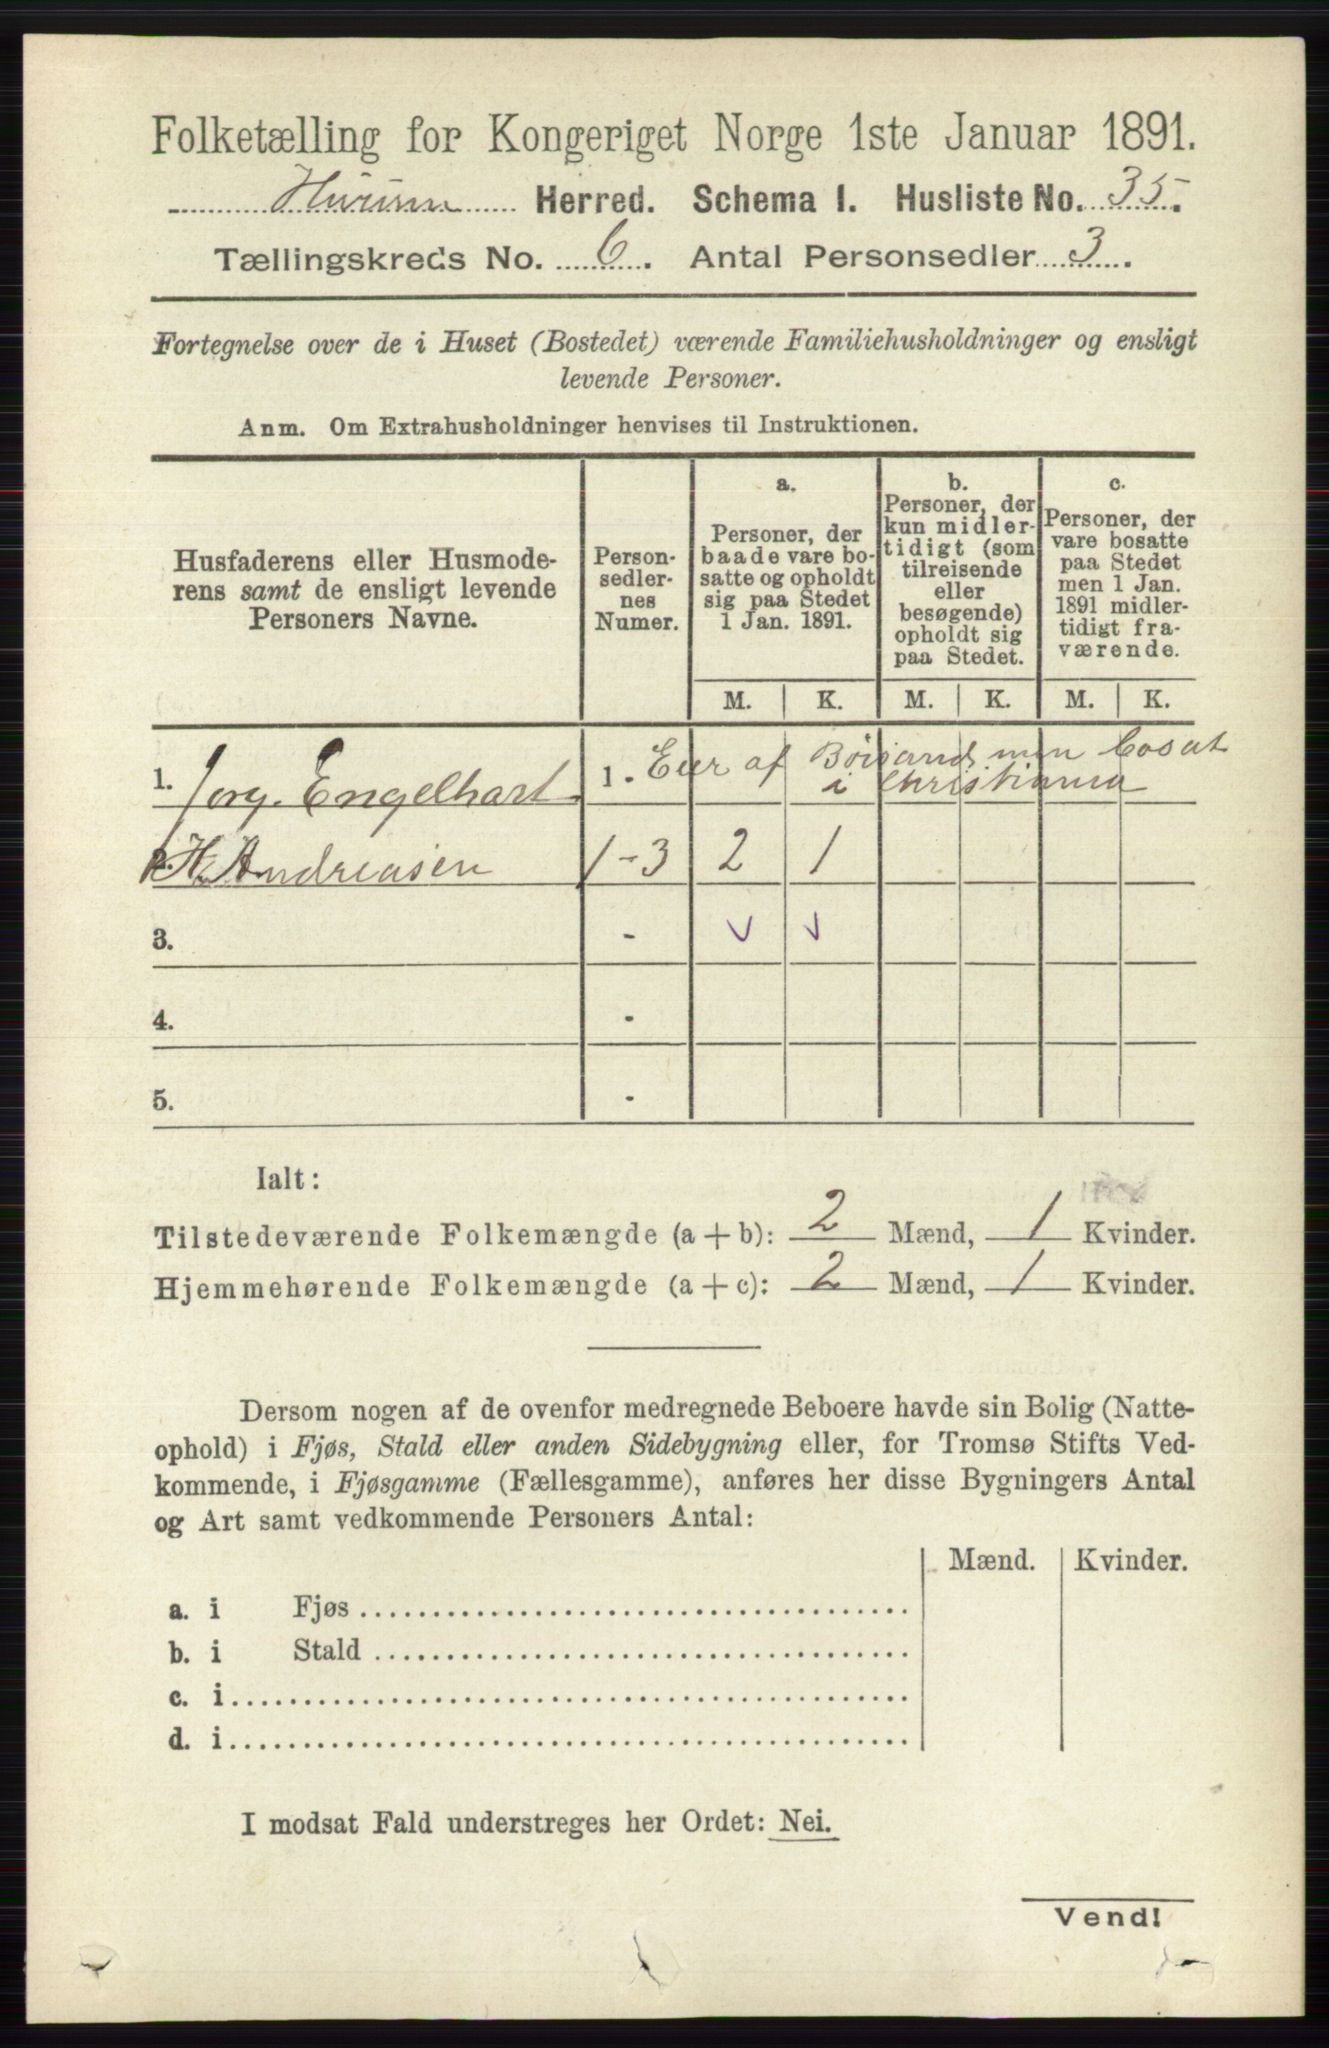 Folketælling for Kongeriget Norge 1ste Januar 1891.
Hurum Herred. Schema I. Husliste No. 35.
Tællingskreds No. 6. Antal Personsedler 3.
Fortegnelse over de i Huset (Bostedet) værende Familiehusholdninger og ensligt
levende Personer.
Anm. Om Extrahusholdninger henvises til Instruktionen.
Husfaderens eller Husmode-
rens samt de ensligt levende
Personers Navne.
Person-
sedler-
nes
Numer.
a.
Personer, der
baade vare bo-
satte og opholdt
sig paa Stedet
1 Jan. 1891.
b.
Personer, der
kun midler-
tidigt (som
tilreisende
eller
besøgende)
opholdt sig
paa Stedet.
c.
Personer, der
vare bosatte
paa Stedet
men 1 Jan.
1891 midler-
tidigt fra-
værende.
M. K. M. K. M. K.
1. Jørg. Engelhart 1 - Eier af men bosat
i Christiania
2. H. Andreasen 1-3 2 1
3. -
4. -
5. -
Ialt:
Tilstedeværende Folkemængde (a + b): 2 Mænd, 1 Kvinder.
Hjemmehørende Folkemængde (a + c): 2 Mænd, 1 Kvinder.
Dersom nogen af de ovenfor medregnede Beboere havde sin Bolig (Natte-
ophold) i Fjøs, Stald eller anden Sidebygning eller, for Tromsø Stifts Ved-
kommende, i Fjøsgamme (Fællesgamme), anføres her disse Bygningers Antal
og Art samt vedkommende Personers Antal:
Mænd. Kvinder.
a. i Fjøs
b. i Stald
c. i
d. i
I modsat Fald understreges her Ordet: Nei.
Vend!